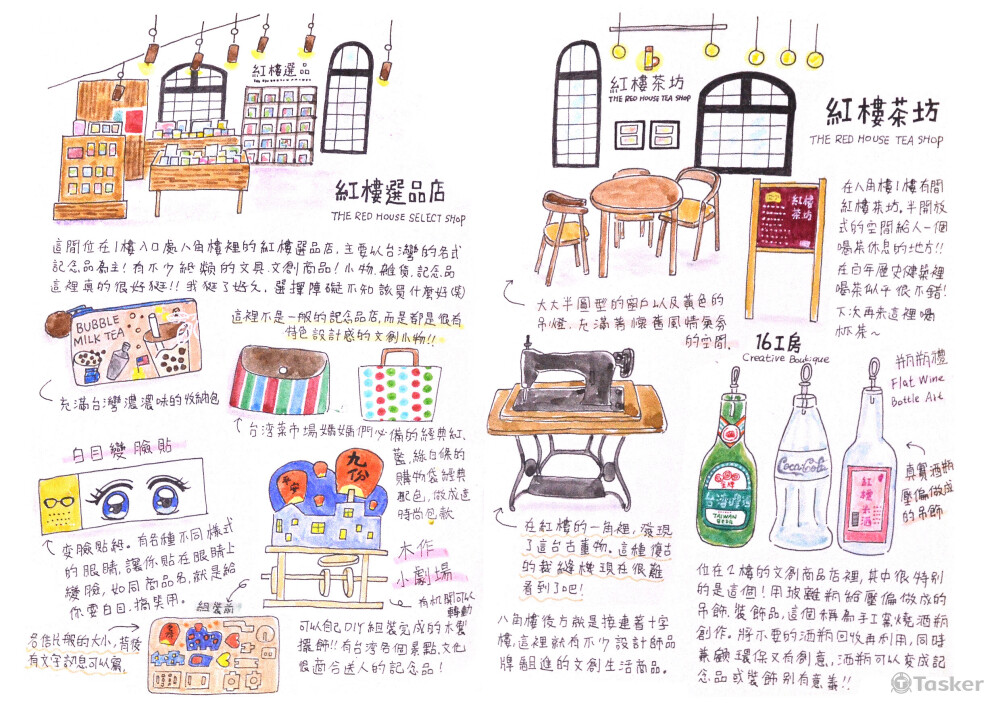 紅樓選品
紅樓選品店
THE RED HOUSE SELECT SHOP
這間位在1樓入口處八角樓裡的紅樓選品店.主要以台灣的各式
記念品為主!有不少紙類的文具.文創商品!小物.雜貨.記念品
這裡真的很好逛!!我逛了好久.選擇障礙不知該買什麼好(笑)
這裡不是一般的記念品店,而是都是很有
特色設計感的文創小物!!
BUBBLE
MILK TEA
充滿台灣濃濃味的收納包
台湾菜市場媽媽們必備的經典紅、
藍,綠白條的
購物袋經典
配色,做成這
時尚包款
白目變臉貼
變臉貼紙。有各種不同樣式
的眼睛,讓你貼在眼睛上
變臉,如同商品名,就是給
你耍白目.搞笑用。
名信片般的大小,背後
有文字訊息可以寫
九份
平安
木作
小劇場
有机関可以
轉動
組裝前
可以自己DIY組裝完成的木製
擺飾!!有台湾各個景點.文化
很適合送人的記念品!
紅樓茶坊
THE RED HOUSE TEA SHOP
紅樓茶坊
THE RED HOUSE TEA SHOP
紅樓
茶坊
在八角樓1樓有間
紅樓茶坊.半開放
式的空間給人一個
喝茶休息的地方!!
在百年歷史建築裡
喝茶似乎很不錯!
下次再來這裡喝
杯茶~
大大半圓型的窗戶以及黃色的
吊燈.充滿著懷舊風情氣氛
的空間.
在紅樓的一角裡,發現
了這台古董物。這種復古
的裁縫機現在很難
看到了吧!
八角樓後方就是接連著十字
樓,這裡就有不少設計師品
牌組進的文創生活商品。
16工房
Creative Boutique
瓶瓶禮
Flat Wine
Bottle Art
台湾啤酒
TAIWAN
BEER
Coca-Cola
紅樓米酒
真實酒瓶
壓偏做成
的吊飾
位在2樓的文創商品店裡,其中很特別
的是這個!用玻離瓶給壓偏做成的
吊飾.裝飾品,這個稱為手工窯燒酒瓶
創作。將不要的酒瓶回收再利用,同時
兼顧環保又有創意,酒瓶可以变成記
念品或裝飾別有意義!!
Tasker